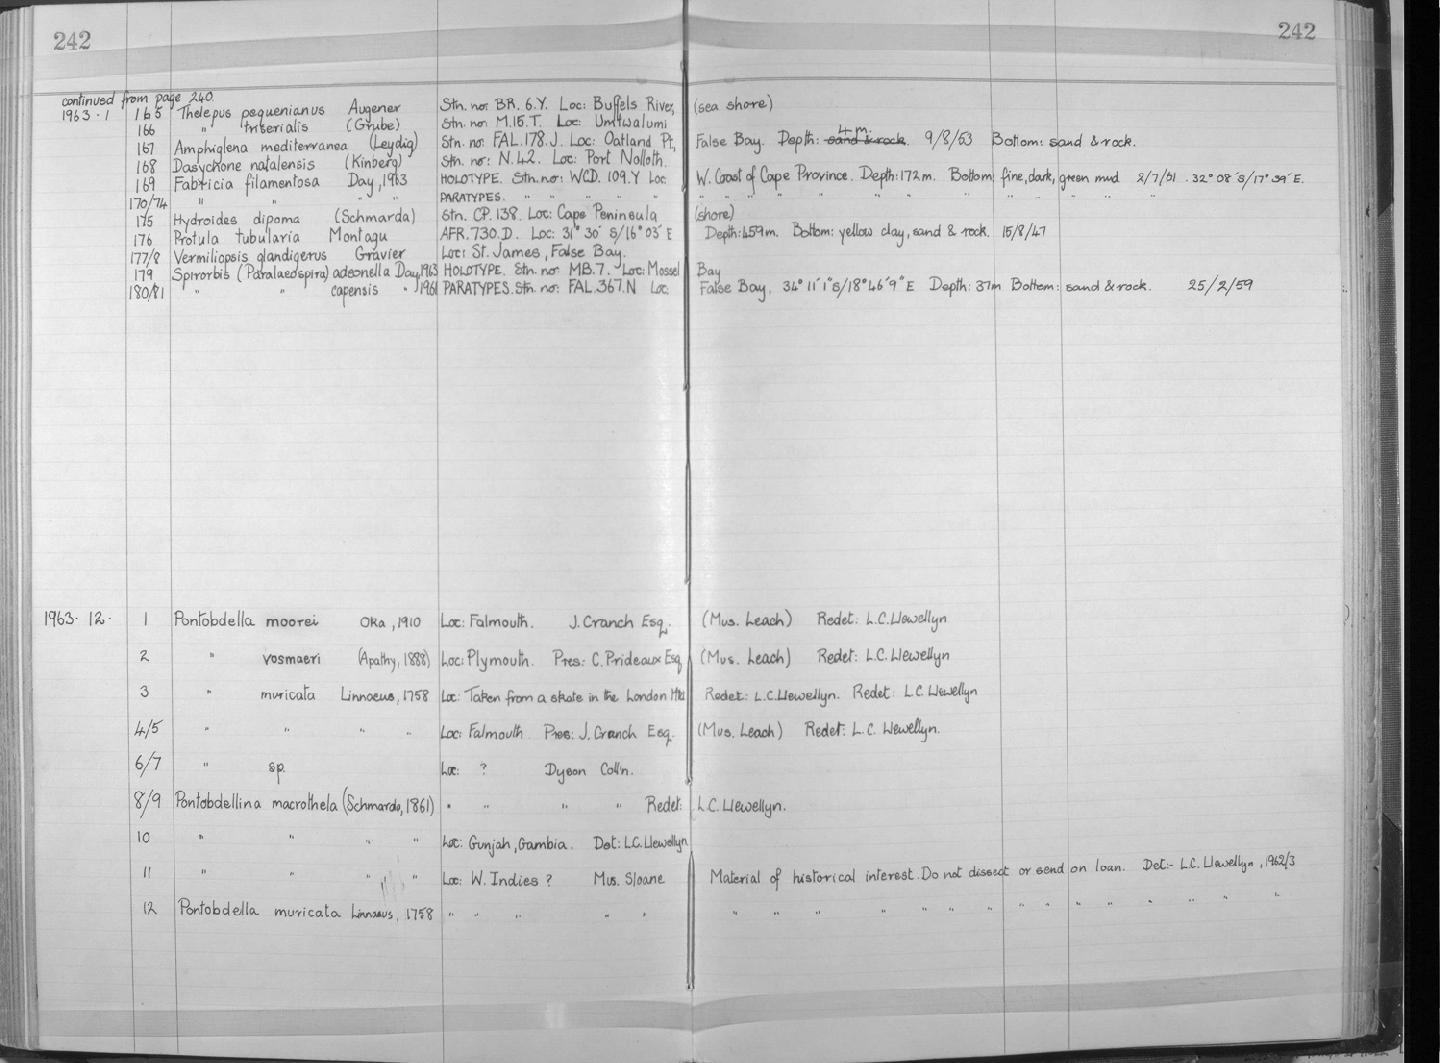 242 242
continued from page 240.
1963·1 165 Thelepus pequenianus Augener Stn. no: BR. 6.Y. Loc: Buffels River, (sea shore)
166 " triserialis (Grube) Stn. no: M.15.T. Loc: Umtwalumi
167 Amphiglena mediterranea (Leydig) Stn. no: FAL.178.J. Loc: Oatland Pt, False Bay. Depth: sand & rock. 4 m. 9/8/53 Bottom: sand & rock.
168 Dasychone natalensis (Kinberg) Stn. no: N.42. Loc: Port Nolloth.
169 Fabricia filamentosa Day, 1963 HOLOTYPE. Stn. no: WCD. 109.Y Loc: W. Coast of Cape Province. Depth: 172m. Bottom fine, dark, green mud 2/7/51 . 32° 08´ S/17° 39´ E.
170/74 " " " " PARATYPES. " " " " " " " " " " " " " " " " " "
175 Hydroides dipoma (Schmarda) Stn. CP. 138. Loc: Cape Peninsula (shore)
176 Protula tubularia Montagu AFR. 730. D. Loc: 31° 30´ S/16° 03´ E Depth: 459m. Bottom: yellow clay, sand & rock. 15/8/47
177/8 Vermiliopsis glandigerus Gravier Loc: St. James, False Bay.
179 Spirorbis (Paralaeospira) adeonella Day, 1963 HOLOTYPE. Stn. no: MB.7. Loc: Mossel Bay
180/81 " " capensis " 1961 PARATYPES. Stn. no: FAL. 367. N Loc: False Bay. 34° 11´ 1"S/18° 46´ 9" E Depth: 37m Bottom: sand & rock. 25/2/59
1963· 12· 1 Pontobdella moorei Oka, 1910 Loc: Falmouth. J. Cranch Esq. (Mus. Leach) Redet: L.C. Llewellyn.
2 " vosmaeri (Apathy, 1888) Loc: Plymouth. Pres: C. Prideaux Esq (Mus. Leach) Redet: L.C. Llewellyn
3 " muricata Linnaeus, 1758 Loc: Taken from a skate in the London Mkt Redet: L.C. Llewellyn. Redet: L.C. Llewellyn
4/5 " " " " Loc: Falmouth Pres: J. Cranch Esq. (Mus. Leach) Redet: L.C. Llewellyn.
6/7 " sp. Loc: ? Dyson Colln.
8/9 Pontobdellina macrothela (Schmarda, 1861) " " " " Redet: L.C. Llewellyn.
10 " " " " Loc: Gunjah, Gambia. Det: L.C. Llewellyn
11 " " " " Loc: W. Indies ? Mus. Sloane Material of historical interest. Do not dissect or send on loan. Det:- L.C. Llewellyn, 1962/3
12 Pontobdella muricata Linnaeus, 1758 " " " " " " " " " " " " " " " " " " " "